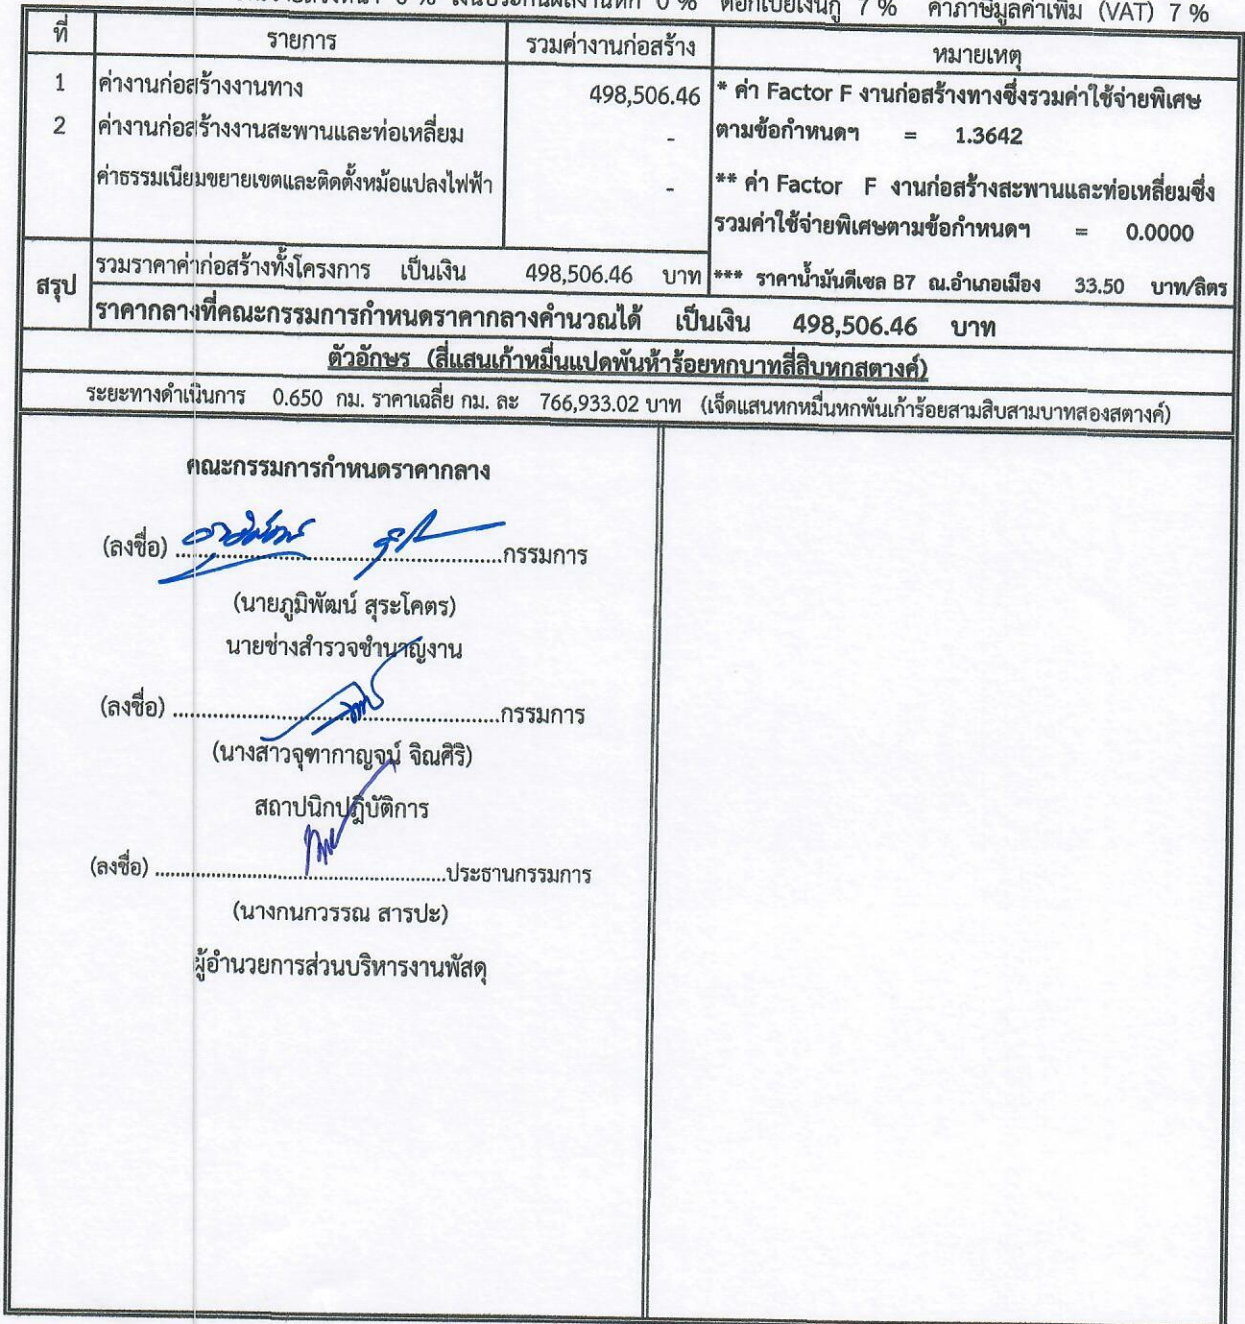 0 % เงินประกันผลงานหัก 0 % ดอกเบี้ยเงินกู้ 7 % ค่าภาษีมูลค่าเพิ่ม (VAT) 7 %
ที่ รายการ รวมค่างานก่อสร้าง หมายเหตุ
1 ค่างานก่อสร้างงานทาง 498,506.46 * ค่า Factor F งานก่อสร้างทางซึ่งรวมค่าใช้จ่ายพิเศษ
2 ค่างานก่อสร้างงานสะพานและท่อเหลี่ยม - ตามข้อกำหนดฯ = 1.3642
ค่าธรรมเนียมขยายเขตและติดตั้งหม้อแปลงไฟฟ้า - ** ค่า Factor F งานก่อสร้างสะพานและท่อเหลี่ยมซึ่ง
รวมค่าใช้จ่ายพิเศษตามข้อกำหนดฯ = 0.0000
สรุป รวมราคาค่าก่อสร้างทั้งโครงการ เป็นเงิน 498,506.46 บาท *** ราคาน้ำมันดีเซล B7 ณ.อำเภอเมือง 33.50 บาท/ลิตร
ราคากลางที่คณะกรรมการกำหนดราคากลางคำนวณได้ เป็นเงิน 498,506.46 บาท
ตัวอักษร (สี่แสนเก้าหมื่นแปดพันห้าร้อยหกบาทสี่สิบหกสตางค์)
ระยะทางดำเนินการ 0.650 กม. ราคาเฉลี่ย กม. ละ 766,933.02 บาท (เจ็ดแสนหกหมื่นหกพันเก้าร้อยสามสิบสามบาทสองสตางค์)
คณะกรรมการกำหนดราคากลาง
(ลงชื่อ) ........................................กรรมการ
(นายภูมิพัฒน์ สุระโคตร)
นายช่างสำรวจชำนาญงาน
(ลงชื่อ) ........................................กรรมการ
(นางสาวจุฑากาญจน์ จิณศิริ)
สถาปนิกปฏิบัติการ
(ลงชื่อ) ........................................ประธานกรรมการ
(นางกนกวรรณ สารปะ)
ผู้อำนวยการส่วนบริหารงานพัสดุ